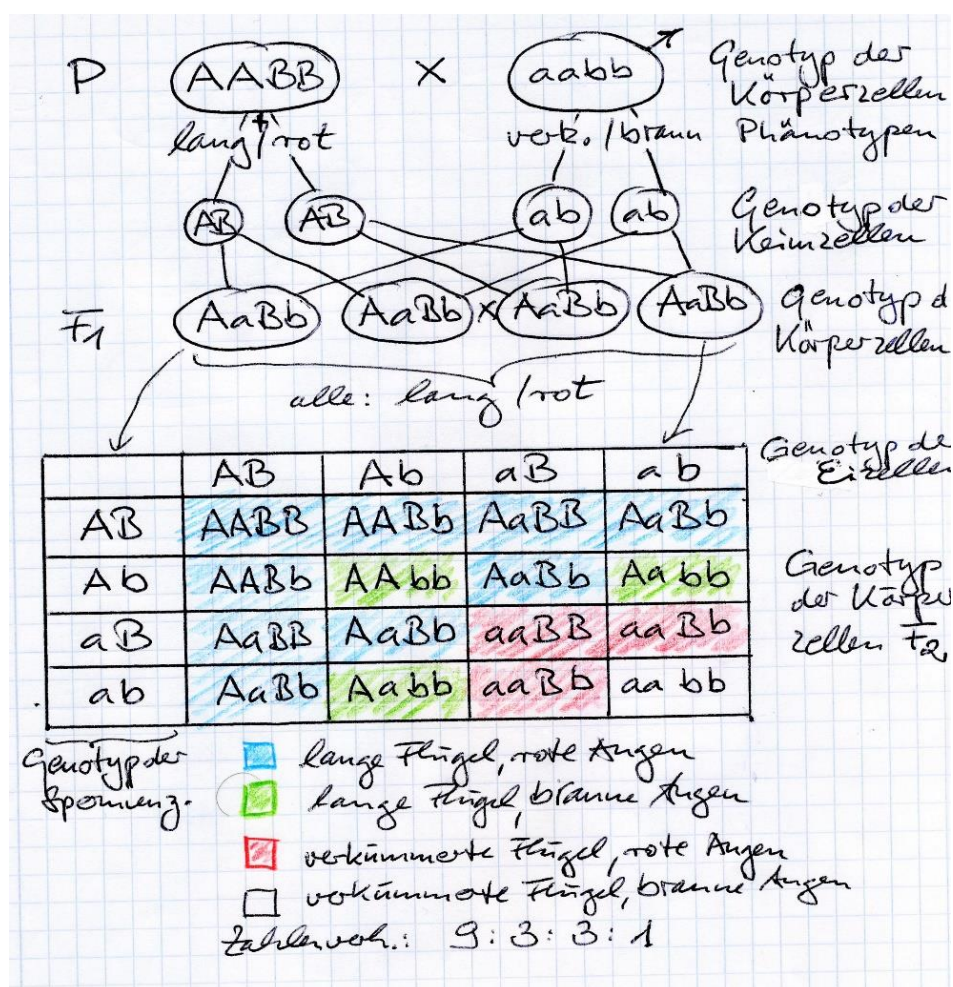 P AABB × aabb Genotyp der
Körperzellen
lang/rot verk./braun Phänotypen
AB AB ab ab Genotyp der
Keimzellen
F1 AaBb AaBb × AaBb AaBb Genotyp d
Körperzellen
alle: lang/rot
Genotyp de
Eizellen
AB Ab aB ab
AB AABB AABb AaBB AaBb
Ab AABb AAbb AaBb Aabb Genotyp
der Körper
aB AaBB AaBb aaBB aaBb zellen F2
ab AaBb Aabb aaBb aabb
Genotyp der
Spermienz.
lange Flügel, rote Augen
lange Flügel, braune Augen
verkümmerte Flügel, rote Augen
verkümmerte Flügel, braune Augen
Zahlenverh.: 9:3:3:1